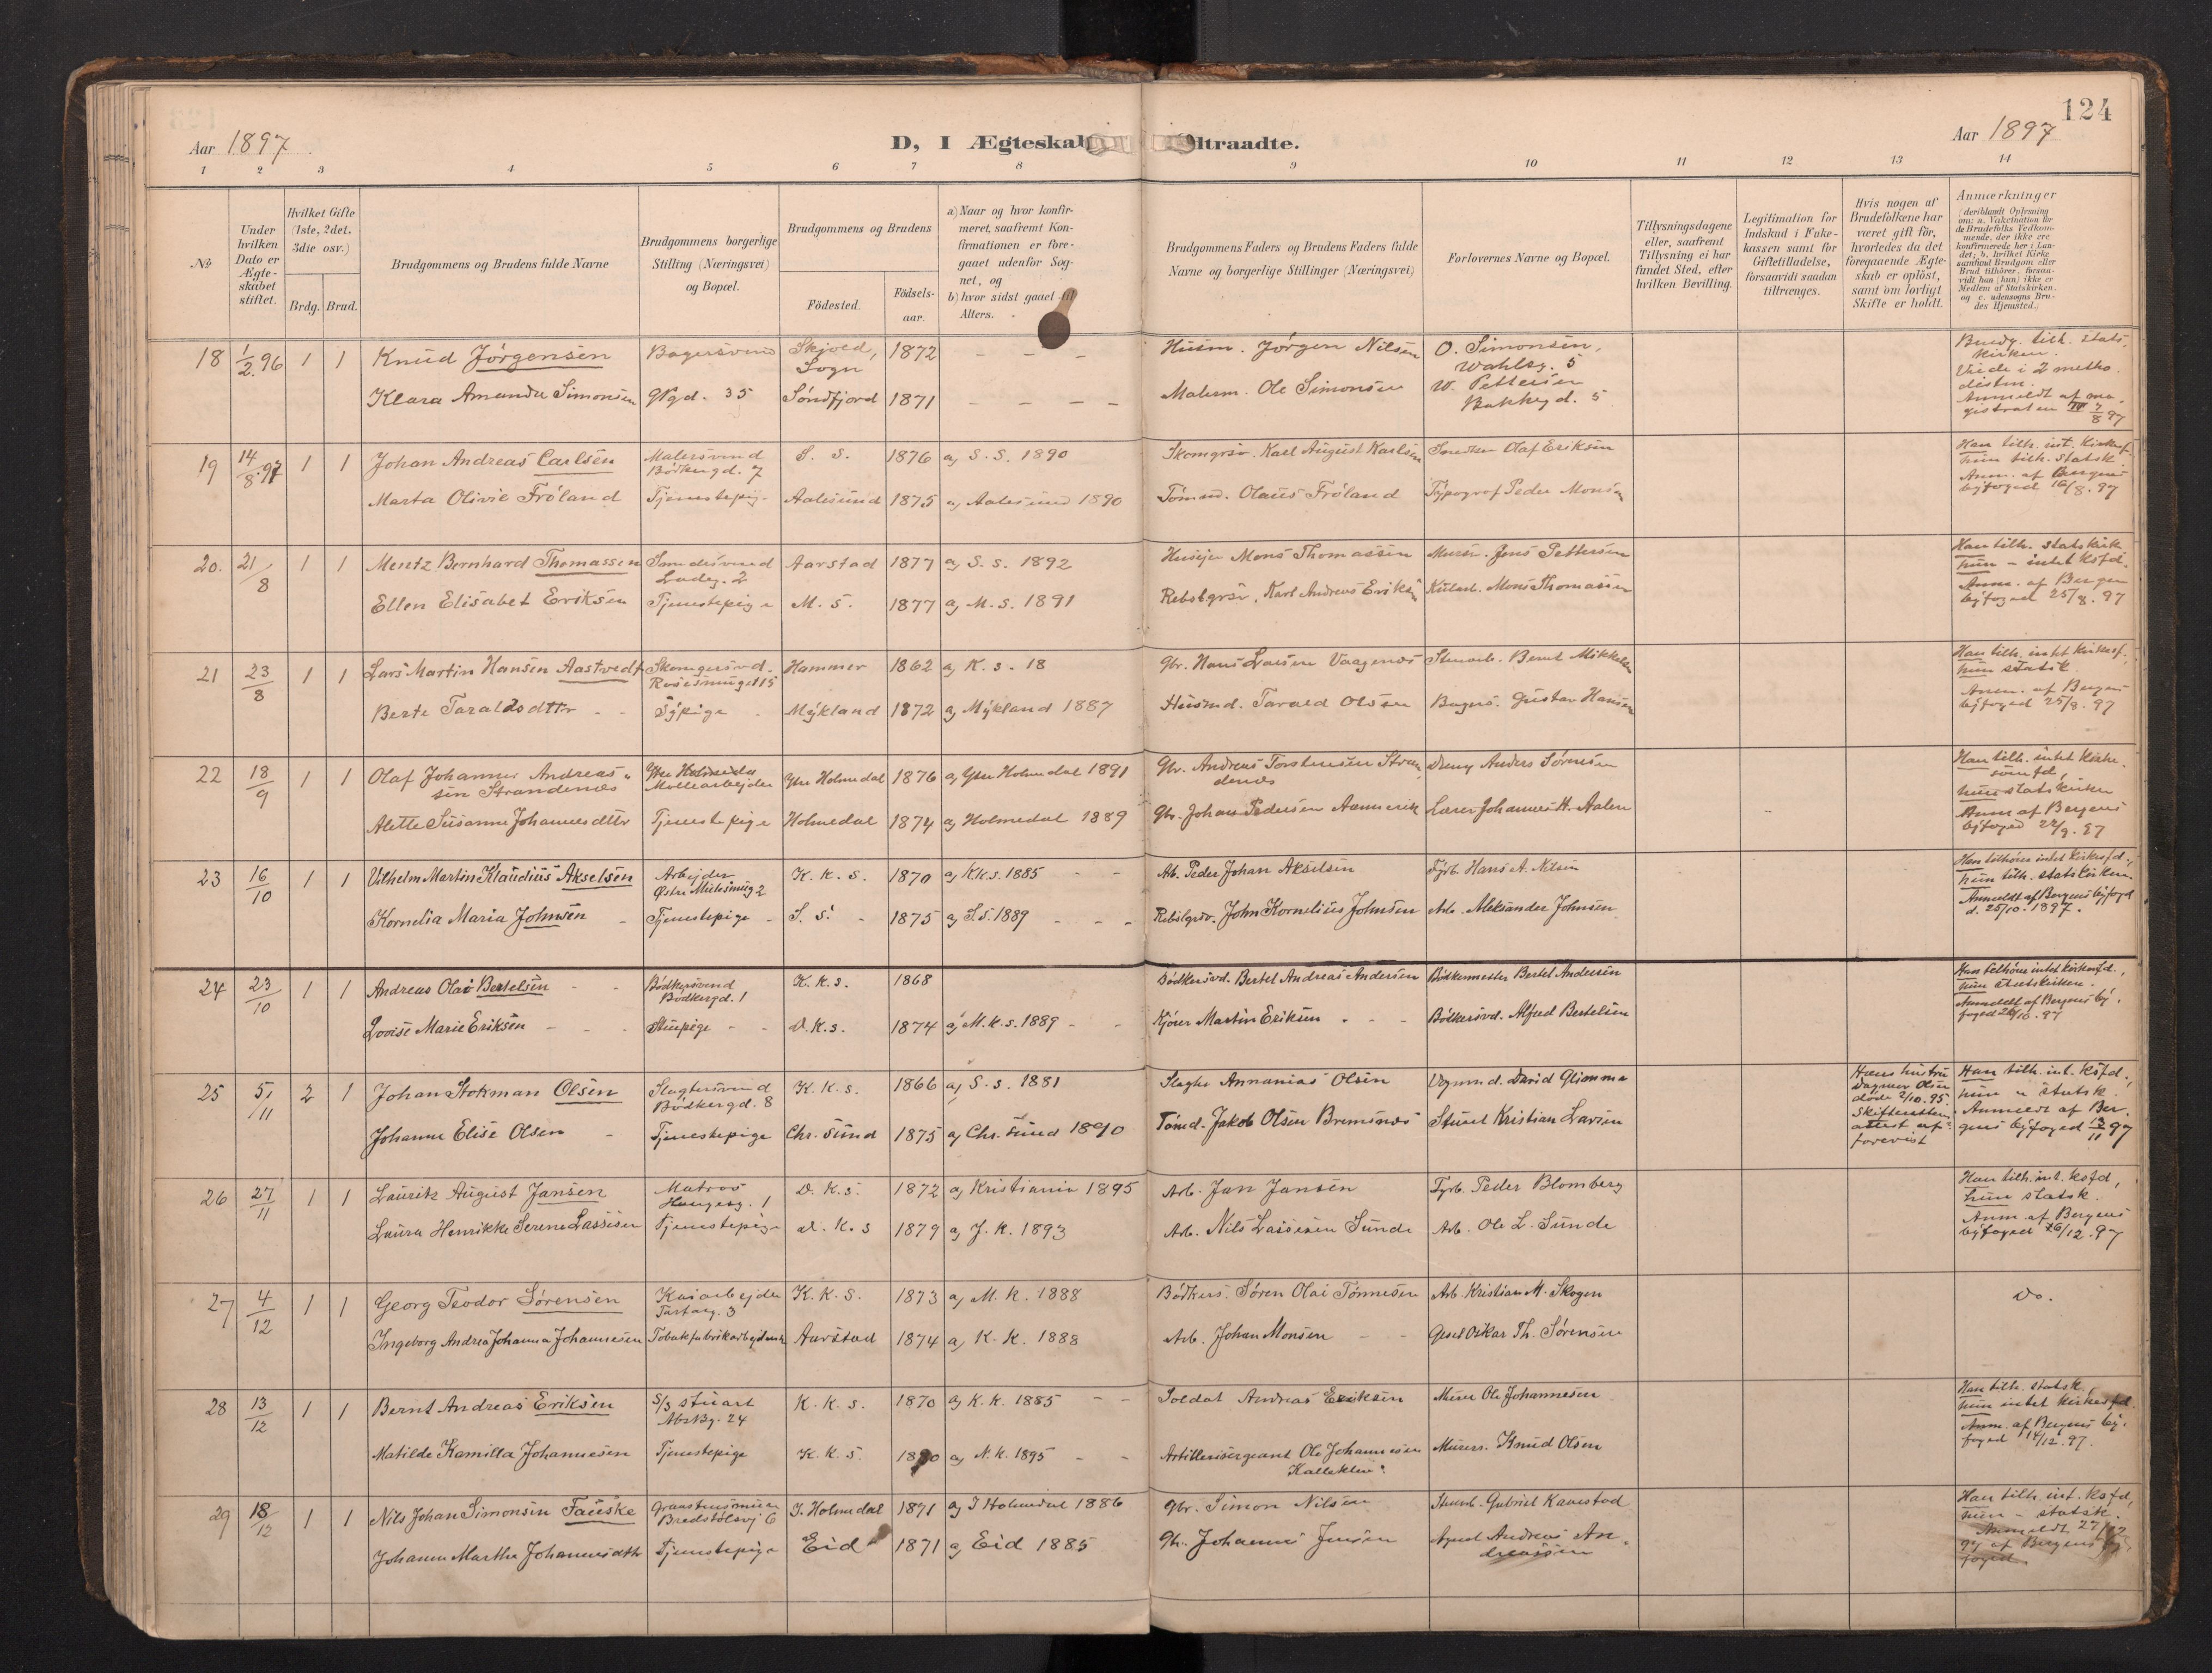 124
Aar 1897
D, I Ægteskab
ltraadte.
Aar 1897
1 2 3 4 5 6 7 8 9 10 11 12 13 14
№
Under hvilken Dato er Ægteskabet stiftet.
Hvilket Gifte (1ste, 2det. 3die osv.)
Brdg. Brud.
Brudgommens og Brudens fulde Navne
Brudgommens borgerlige Stilling (Næringsvei) og Bopæl.
Brudgommens og Brudens
Födested.
Födsels-aar.
a) Naar og hvor konfirmeret, saafremt Konfirmationen er foregaaet udenfor Sognet, og
b) hvor sidst gaaet til Alters.
Brudgommens Faders og Brudens Faders fulde Navne og borgerlige Stillinger (Næringsvei)
Forlovernes Navne og Bopæl.
Tillysningsdagene eller, saafremt Tillysning ei har fundet Sted, efter hvilken Bevilling.
Legitimation for Indskud i Enkekassen samt for Giftetilladelse, forsaavidt saadan tiltrænges.
Hvis nogen af Brudefolkene har været gift för, hvorledes da det foregaaende Ægteskab er oplöst, samt om lovligt Skifte er holdt.
Anmærkninger (deriblandt Oplysning om: a. Vakcination for de Brudefolks Vedkommende, der ikke ere konfirmerede her i Landet; b. hvilket Kirkesamfund Brudgom eller Brud tilhörer, forsaavidt han (hun) ikke er Medlem af Statskirken. og c. udensogns Brudes Hjemsted.)
18 1/2.96 1 1 Knud Jørgensen Bagersvend Skjold, Sogn 1872 – – – Husm. Jørgen Nilsen O. Simonsen, Wahlsg. 5
Klara Amanda Simonsen Ngd. 35 Søndfjord 1871 – – – – Malerm. Ole Simonsen W. Pettersen Bakkegd. 5
Brudg. tilh. statskirken.
Anmeldt af magistraten 7/8 97
19 14/8.97 1 1 Johan Andreas Carlsen Malersvend Bødkergd. 7 S. S. 1876 a) S. S. 1890 Skomgrsv. Karl August Karlsen Snedker Olaf Eriksen
Marta Olivie Frøland Tjenestepig. Aalesund 1875 a) Aalesund 1890 Tømm. Olaus Frøland Typograf Peder Monsen
Han tilh. int. kirkesf.
hun tilh. statsk.
Anm. af Bergens
byfoged 16/8.97
20. 21/8 1 1 Mentz Bernhard Thomassen Smedsvend Ladeg. 2 Aarstad 1877 a) S. S. 1892 Husejer Mons Thomassen Murer. Jens Pettersen
Ellen Elisabet Eriksen Tjenestepige M. S. 1877 a) M. S. 1891 Rebslgrsv. Karl Andreas Eriksen Mons Thomassen
Han tilh. statskirk.
hun – intet ksfd.
Anm. af Bergen
byfoged 25/8.97
21 23/8 1 1 Lars Martin Hansen Aastvedt Skomgersvd. Rosesmuget 15 Hammer 1862 a) K. s. 18 Gbr. Hans Larsen Vaagenes Bernt Mikkelsen
Berte Taraldsdttr Sypige Mykland 1872 a) Mykland 1887 Husmd. Tarald Olsen Bagers. Gustav Hansen
Han tilh. intet kirkesf.
hun statsk.
Anm. af Bergens
byfoged 25/8.97
22 18/9 1 1 Olaf Johannes Andreassen Strandenæs Ytre Holmedal Møllearbejder Ytre Holmedal 1876 a) Ytre Holmedal 1891 Gbr. Andreas Torstensen Strandenæs Anders Sørensen
Alette Susanne Johannesdttr Tjenestepige Holmedal 1874 a) Holmedal 1889 Gbr. Johan Pedersen Aamerik Lærer Johannes H. Aalen
Han tilh. intet kirkesamfd,
hun statskirken
Anm af Bergens
byfoged 22/9.97
23 16/10 1 1 Vilhelm Martin Klaudius Akselsen Arbejder Østre Muhsmug 2 K. K. S. 1870 a) K.K.s. 1885 – – Arb. Peder Johan Akselsen Fyrb. Hans A. Nilsen
Kornelia Maria Johnsen Tjenestepige S. S. 1875 a) S.s. 1889 – – Rebslgrsv. John Kornelius Johnsen Arb. Aleksander Johnsen
Han tilhører intet kirkesfd.,
hun tilh. statskirken.
Anmeldt af Bergens byfoged
d. 25/10. 1897.
24 23/10 1 1 Andreas Olai Bertelsen Bødkersvend Bødkergd. 1 K. K. s. 1868 Bødkersvd. Bertel Andreas Andersen Bødkermester Bertel Andersen
Lovise Marie Eriksen Stuepige D. K. s. 1874 a) M. K. s. 1889 – – Kjører Martin Eriksen Bødkersvd. Alfred Bertelsen
Han tilhører intet kirkesfd.,
hun statskirken.
Anmeldt af Bergens byfoged 26/10.97
25 5/11 2 1 Johan Stokman Olsen Slagtersvend Bødkergd. 8 K. K. s. 1866 a) S. s. 1881 Slagter Annanias Olsen Vognmd. David Glimme
Johanne Elise Olsen Tjenestepige Chr. sund 1875 a) Chr. sund 1890 Tømd. Jakob Olsen Bremsnes Stuert Kristian Larsen
Hans hustru Dagmar Olsen døde 2/10.95. attest forevist
Han tilh. int. ksfd.,
hun – statsk.
Anmeldt af Bergens byfoged 13/11 97
26 27/11 1 1 Lauritz August Jansen Matros Haugeg. 1 D. K. s. 1872 a) Kristiania 1895 Arb. Jan Jansen Fyrb. Peder Blomberg
Laura Henrikke Serene Lassesen Tjenestepige D. K. s 1879 a) J. K. 1893 Arb. Nils Lassesen Sunde Arb. Ole L. Sunde
Han tilh. int. ksfd,
hun statsk.
Anm. af Bergens
byfoged 16/12.97
27 4/12 1 1 Georg Teodor Sørensen Kaiarbejder Tartarg. 3 K. K. S. 1873 a) M. K. 1888 Bødkers. Søren Olai Tønnesen Arb. Kristian M. Skogen
Ingeborg Andrea Johanna Johannesen Tobakfabrikarbejderske Aarstad 1874 a) K. K. 1888 Arb. Johan Monsen – – Oskar Th. Sørensen
Do.
28 13/12 1 1 Bernt Andreas Eriksen S/S stuart 24 K. K. s. 1870 a) K. K. 1885 – – Soldat Andreas Eriksen Murer Ole Johannesen
Matilde Kamilla Johannesen Tjenestepige K. K. S. a) N. K. 1895 – – Artillerisergeant Ole Johannesen Murers. Knud Olsen
Han tilh. statsk.
hun intet kirkesfd.
Anm. af Bergens byfoged 14/12.97.
29 18/12 1 1 Nils Johan Simonsen Fauske Bredstølsvj 6 I. Holmedal 1871 a) I Holmedal 1886 Gbr. Simon Nilsen Gabriel Kanestad
Johanne Marthe Johannesdtr Tjenestepige Eid 1871 a) Eid 1885 Gbr. Johannes Jensen Agent Andreas Andreassen
Han tilh. int. ksfd,
hun – statsk.
Anmeldt 27/12
97 af Bergens byfoged